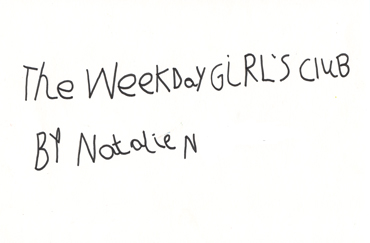 The WeekDay GiRL'S CluB
BY Natalie N